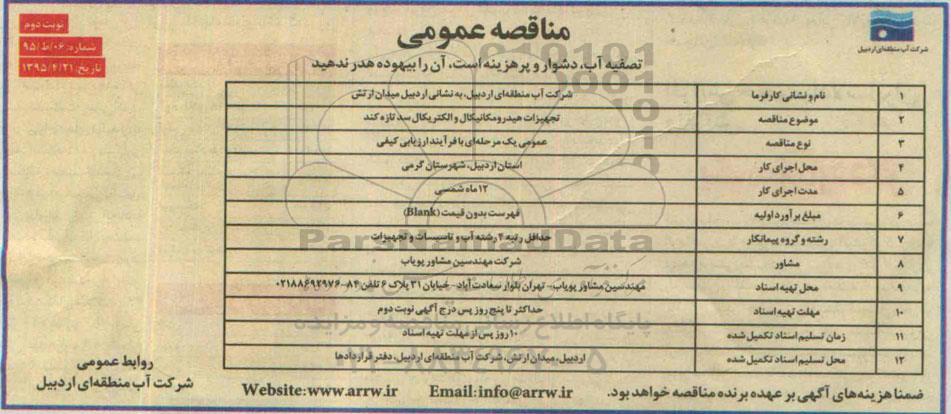 شرکت آب منطقه‌ای اردبیل
مناقصه عمومی
نوبت دوم
شماره: ۰۶/ط/۹۵
تاریخ: ۱۳۹۵/۴/۲۱
تصفیه آب، دشوار و پرهزینه است، آن را بیهوده هدر ندهید
۱ نام و نشانی کارفرما شرکت آب منطقه‌ای اردبیل، به نشانی اردبیل میدان ارتش
۲ موضوع مناقصه تجهیزات هیدرومکانیکال و الکتریکال سد تازه کند
۳ نوع مناقصه عمومی یک مرحله‌ای با فرآیند ارزیابی کیفی
۴ محل اجرای کار استان اردبیل، شهرستان گرمی
۵ مدت اجرای کار ۱۲ ماه شمسی
۶ مبلغ برآورد اولیه فهرست بدون قیمت (Blank)
۷ رشته و گروه پیمانکار حداقل رتبه ۴ رشته آب و تاسیسات و تجهیزات
۸ مشاور شرکت مهندسین مشاور پویاب
۹ محل تهیه اسناد مهندسین مشاور پویاب- تهران بلوار سعادت آباد - خیابان ۳۱ پلاک ۶ تلفن ۸۴-۰۲۱۸۸۶۹۲۹۷۶
۱۰ مهلت تهیه اسناد حداکثر تا پنج روز پس درج آگهی نوبت دوم
۱۱ زمان تسلیم اسناد تکمیل شده ۱۰ روز پس از مهلت تهیه اسناد
۱۲ محل تسلیم اسناد تکمیل شده اردبیل، میدان ارتش، شرکت آب منطقه‌ای اردبیل، دفتر قراردادها
ضمنا هزینه‌های آگهی بر عهده برنده مناقصه خواهد بود. Email:info@arrw.ir Website:www.arrw.ir
روابط عمومی
شرکت آب منطقه‌ای اردبیل